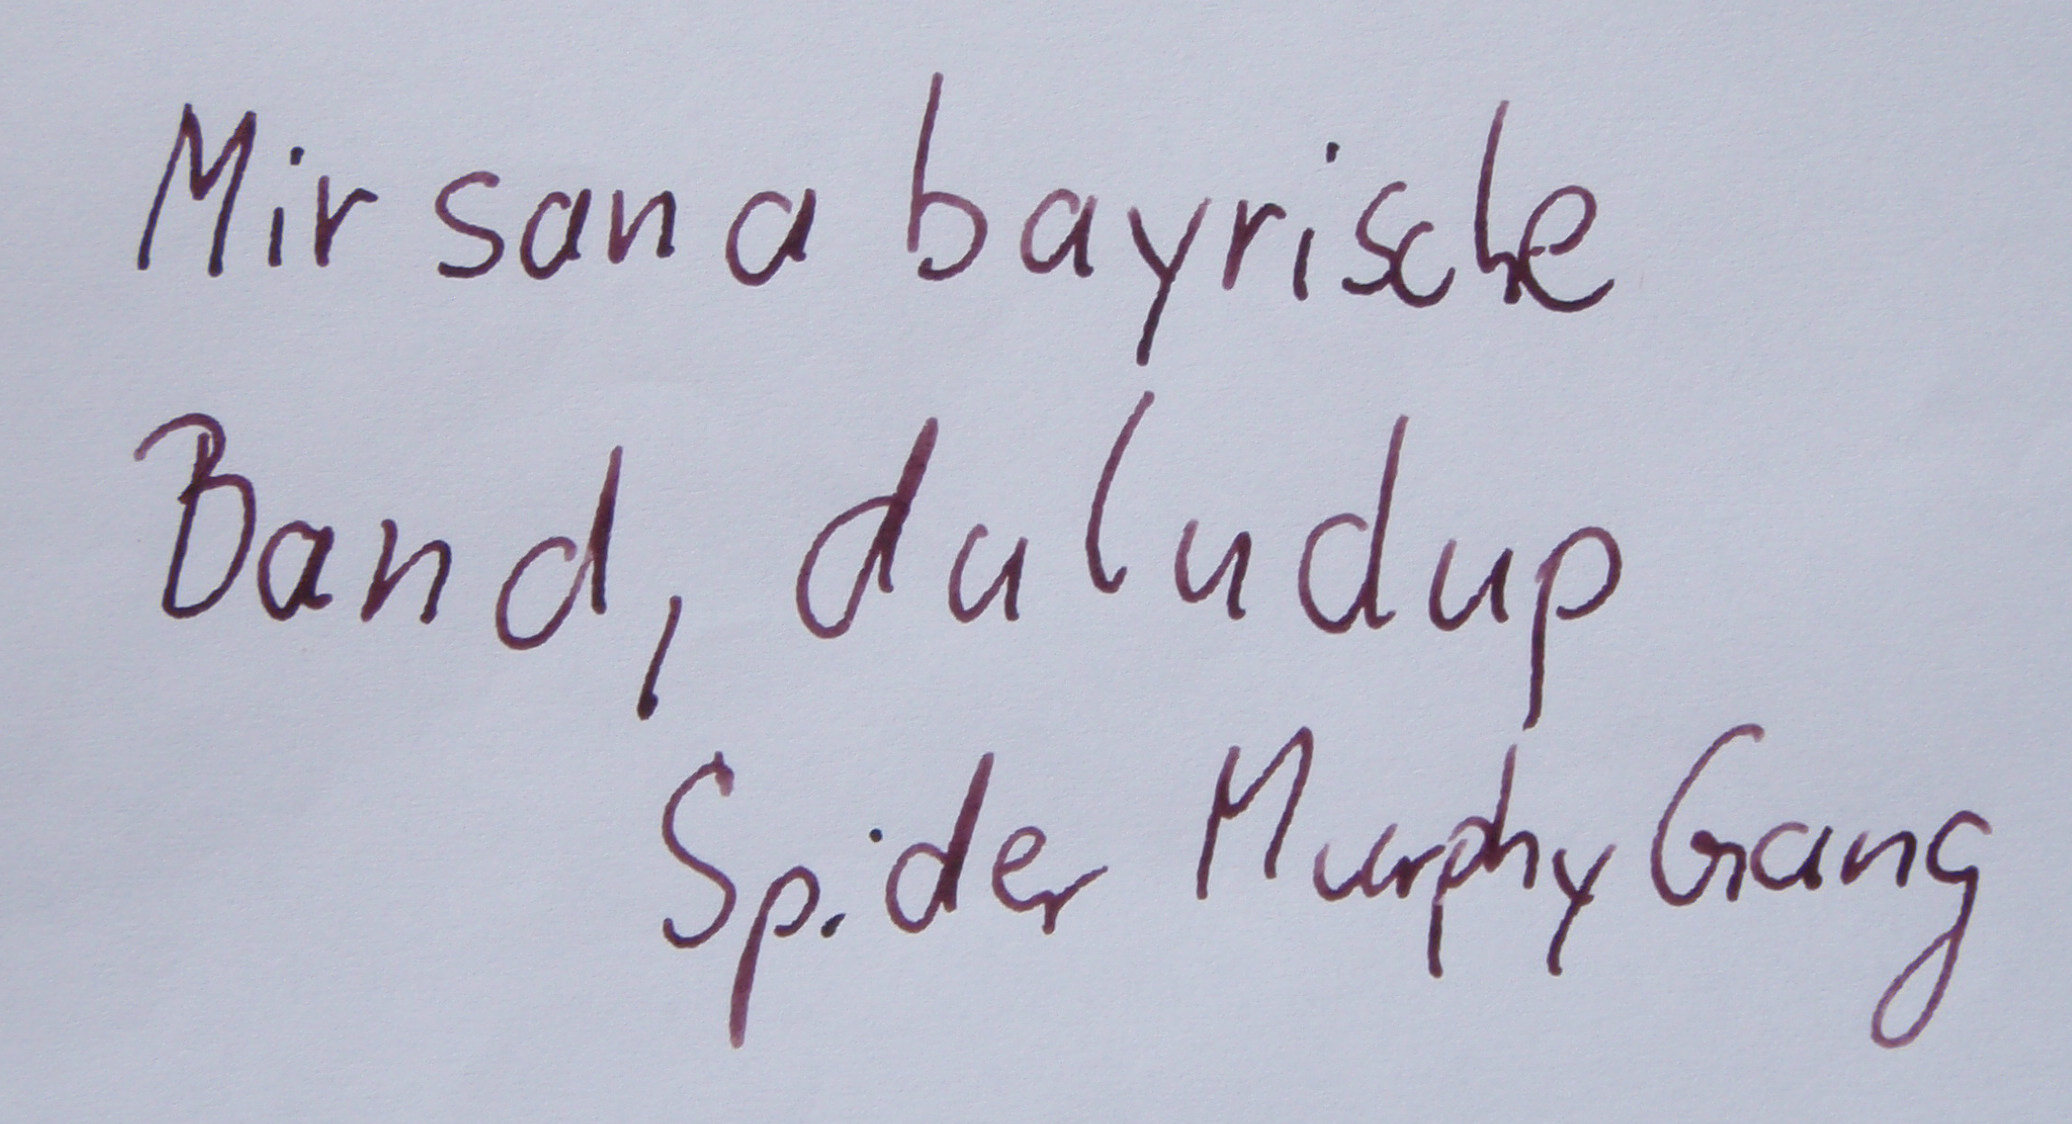 Mir san a bayrische
Band, duludup
Spider Murphy Gang